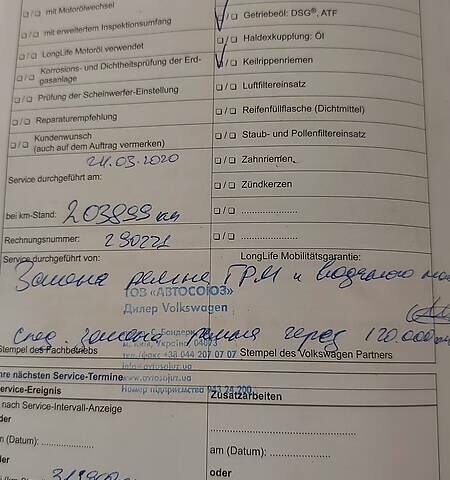 ▢/▢ mit Motorölwechsel
▢/▢ mit erweitertem Inspektionsumfang
▢/▢ LongLife Motoröl verwendet
▢/▢ Korrosions- und Dichtheitsprüfung der Erd-
gasanlage
▢/▢ Prüfung der Scheinwerfer-Einstellung
▢/▢ Reparaturempfehlung
▢/▢ Kundenwunsch
(auch auf dem Auftrag vermerken)
24.03.2020
Service durchgeführt am:
bei km-Stand: 203899 км
Rechnungsnummer: 290271
Service durchgeführt von:
▢/▢ Getriebeöl: DSG®, ATF
▢/▢ Haldexkupplung: Öl
▢/▢ Keilrippenriemen
▢/▢ Luftfiltereinsatz
▢/▢ Reifenfüllflasche (Dichtmittel)
▢/▢ Staub- und Pollenfiltereinsatz
▢/▢ Zahnriemen
▢/▢ Zündkerzen
▢/▢ .....................
▢/▢ .....................
LongLife Mobilitätsgarantie:
Замена ремня ГРМ и водяного
ТОВ «АВТОСОЮЗ»
Дилер Volkswagen
след. замена ремня через 120.000
Stempel des Fachbetriebs
тел./факс +38 044 207 07 07
Stempel des Volkswagen Partners
www.avtosojuz.ua
Номер підприємство 943 24 200
hre nächsten Service-Termine
ervice-Ereignis
Zusatzarbeiten
nach Service-Intervall-Anzeige
der
m (Datum): ..............
am (Datum): .....................
der
oder